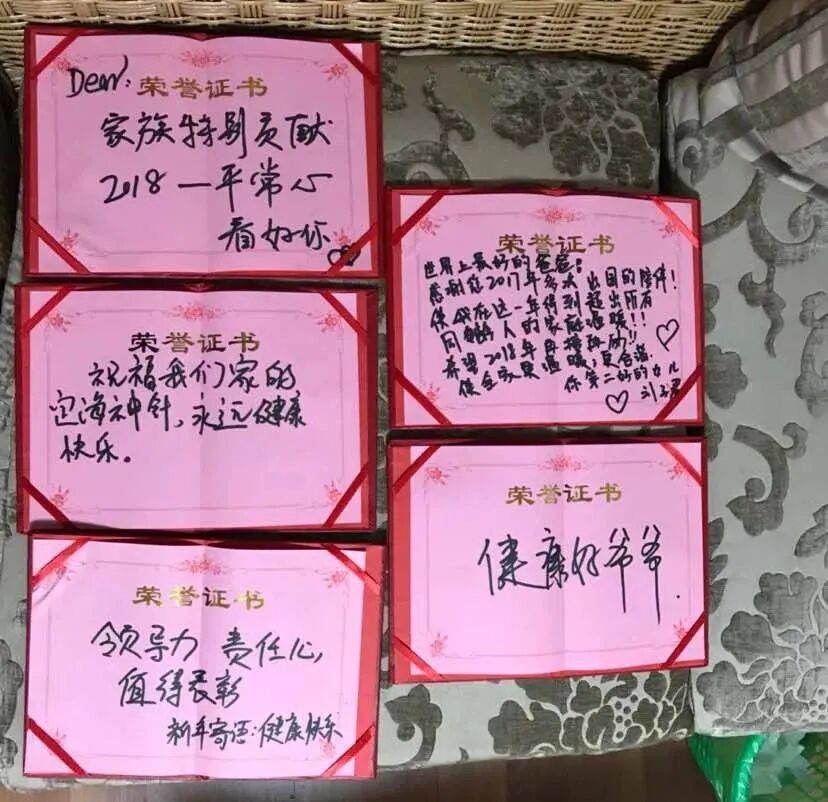 Dear: 荣誉证书
家族特别贡献
2018一平常心
看好你
荣誉证书
祝福我们家的
定海神针，永远健康
快乐。
荣誉证书
领导力 责任心，
值得表彰
新年寄语：健康快乐
荣誉证书
世界上最好的爸爸：
感谢您2017年多次出国的陪伴！
使我在这一年得到超出所有
同龄人的家庭温暖！！
希望2018年再接再励！！
使全家更温暖，更合谐.
你第二好的女儿
荣誉证书
健康好爷爷.